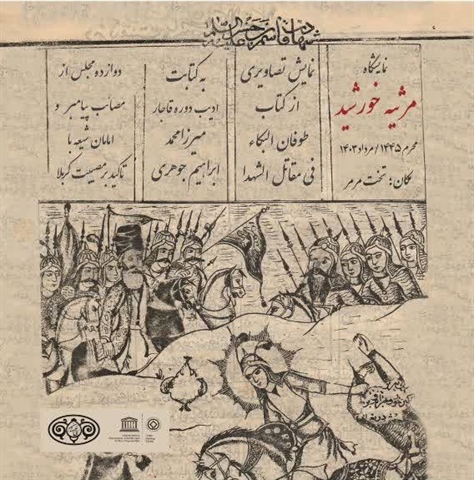 شهادت قاسم
نمایشگاه
مرثیه خورشید
محرم ۱۴۴۵/مرداد ۱۴۰۳
مکان: تخت مرمر
نمایش تصاویری
از کتاب
طوفان البکاء
فی مقاتل الشهدا
به کتابت
ادیب دوره قاجار
میرزا محمد
ابراهیم جوهری
دوازده مجلس از
مصائب پیامبر و
امامان شیعه با
تاکید بر مصیبت کربلا